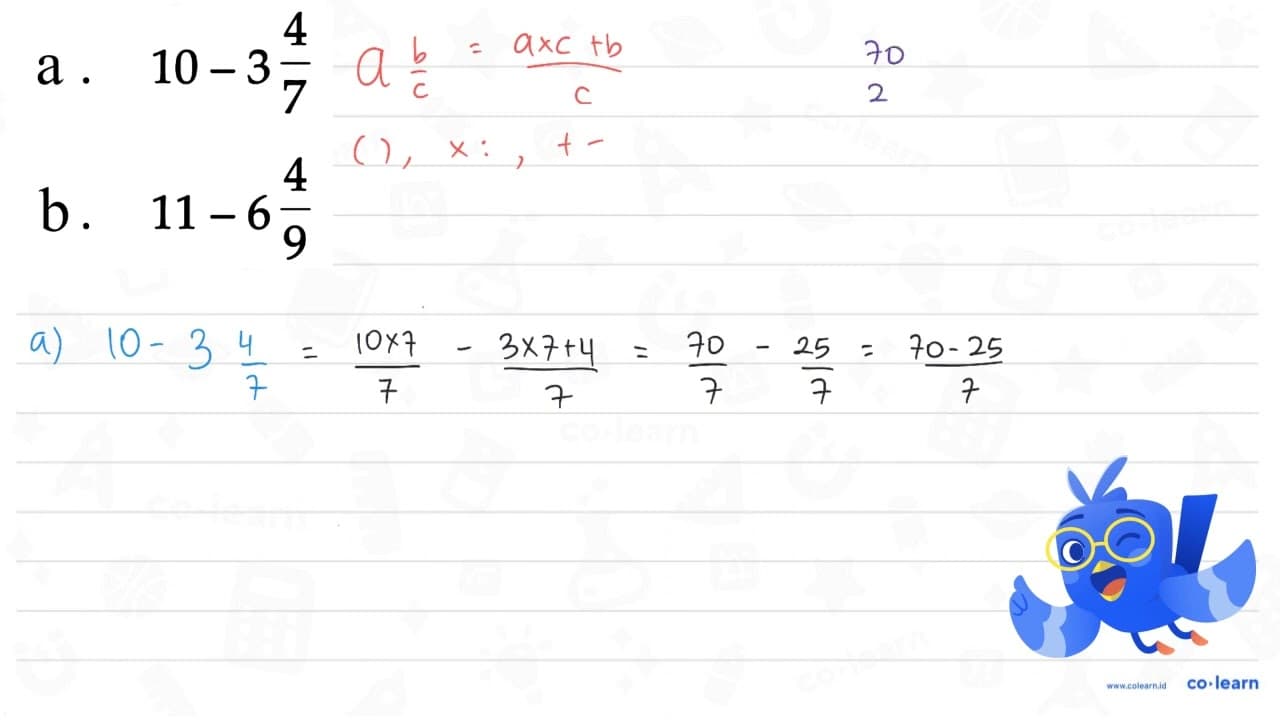 a. 10 - 3 4/7 a b/c = axc +b / c 70
2
( ), x : , + -
b. 11 - 6 4/9
a) 10 - 3 4/7 = 10x7/7 - 3x7+4/7 = 70/7 - 25/7 = 70-25/7
www.colearn.id co·learn